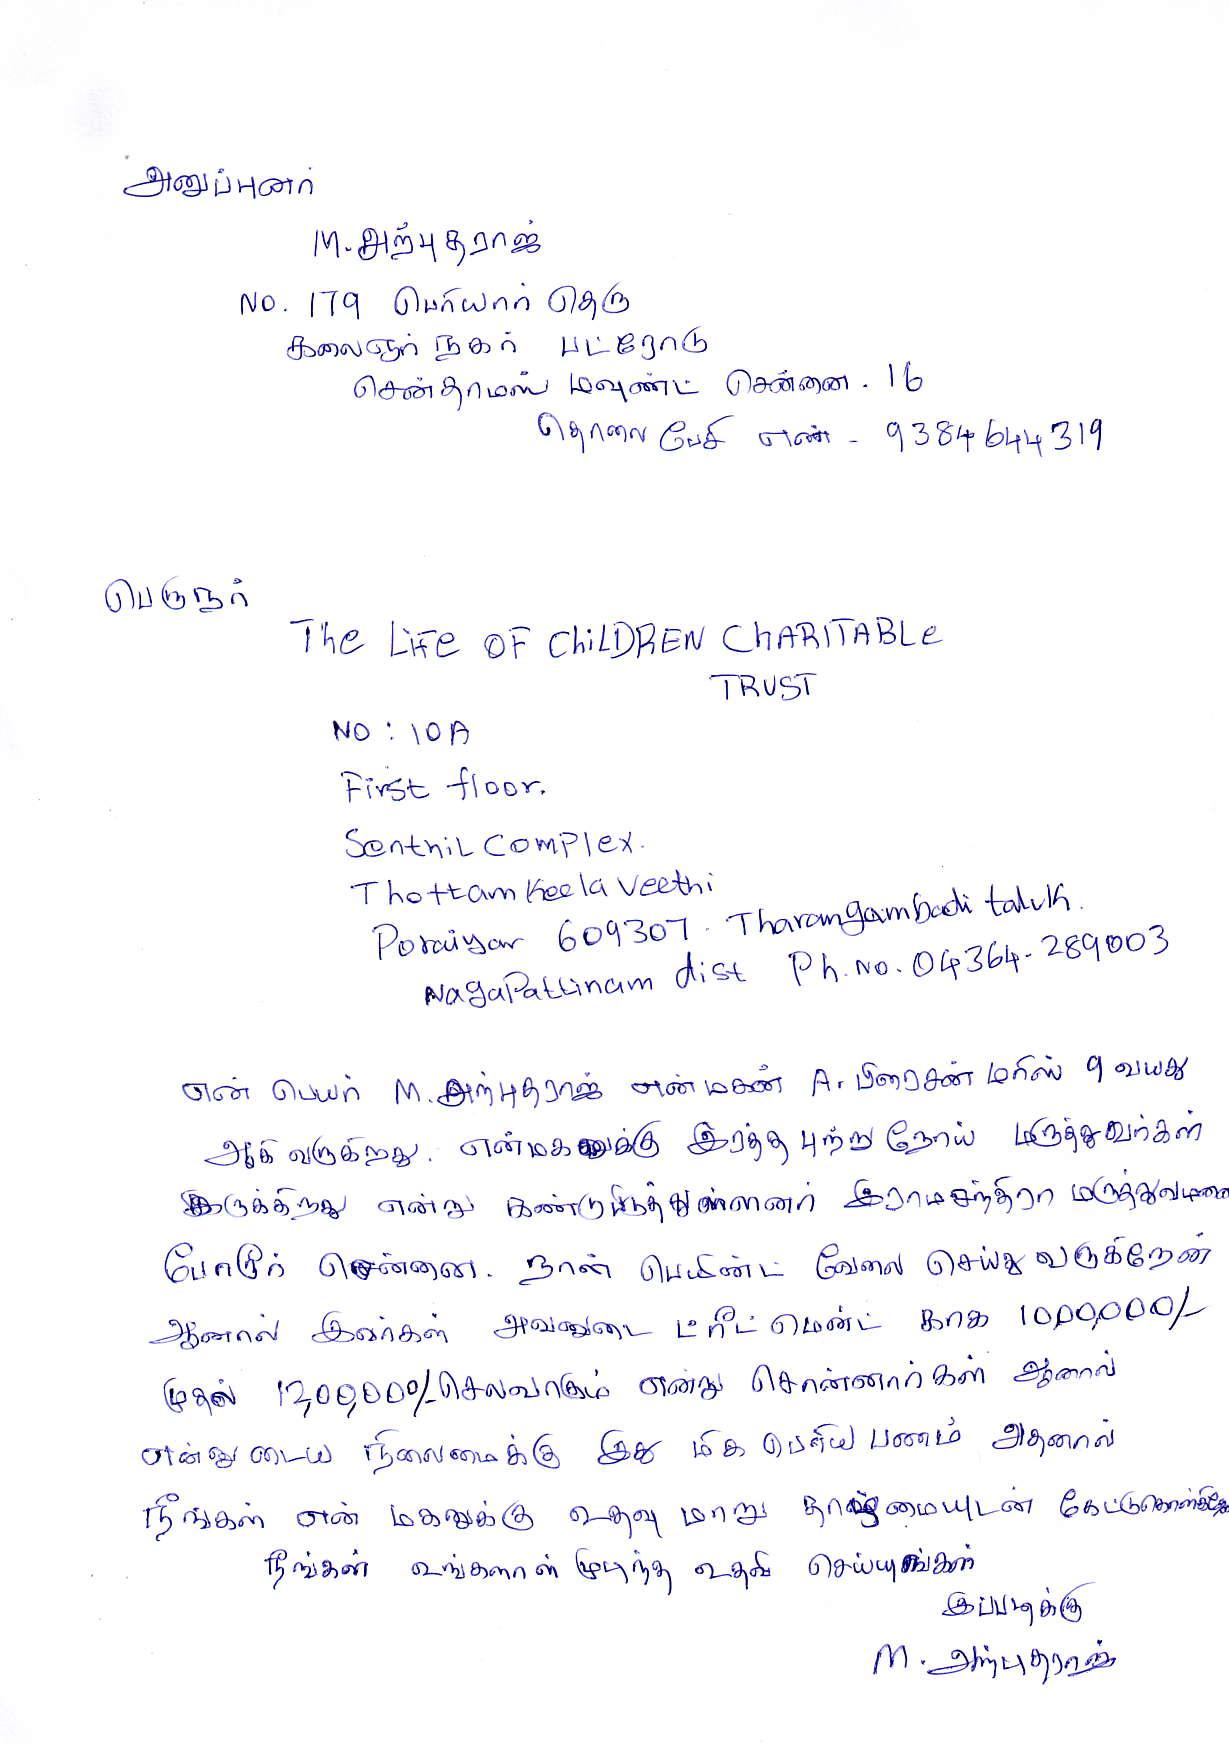 அனுப்புனர்
M. அற்புதராஜ்
NO. 179 பெரியார் தெரு
கலைஞர் நகர் பட்ரோடு
செண்தாமஸ் மவுண்ட் சென்னை. 16
தொலை பேசி எண் - 9384644319
பெருநர்
The LIFe OF ChiLDREN CHARITABLe
TRUST
NO : 10A
First floor.
SenthiL Complex.
Thottam Keela Veethi
Poraiyar 609307. Tharangambadi taluk.
NagaPattinam dist Ph. No. 04364-289003
என் பெயர் M. அற்புதராஜ் என் மகன் A. பிரைசன் மரிஸ் 9 வயது
ஆகி வருகிறது. என் மகனுக்கு இரத்த புற்று நோய் மருத்துவர்கள்
இருக்கிறது என்று கண்டுபிடித்துள்ளனர் இராமசந்திரா மருத்துவமனை
போரூர் சென்னை. நான் பெயிண்ட் வேலை செய்து வருகிறேன்
ஆனால் இவர்கள் அவனுடை ட்ரீட்மென்ட் காக 10,00,000/-
முதல் 12,00,000/- செலவாகும் என்று சொன்னார்கள் ஆனால்
என்னுடைய நிலைமைக்கு இது மிக பெரிய பணம் அதனால்
நீங்கள் என் மகனுக்கு உதவு மாறு தாழ்மையுடன் கேட்டுகொள்கிறே
நீங்கள் உங்களால் முடிந்த உதவி செய்யுங்கள்
இப்படிக்கு
M. அற்புதராஜ்